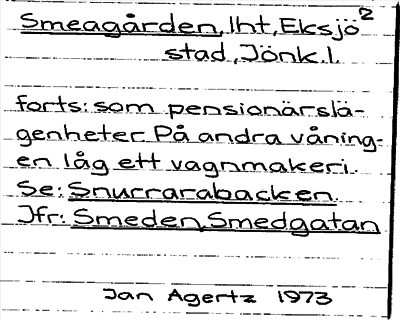 Smeagården, lht, Eksjö 2
stad, Jönk. l.
forts: som pensionärslä-
genheter. På andra våning-
en låg ett vagnmakeri.
Se: Snurrarabacken.
Jfr: Smeden, Smedgatan
Jan Agertz 1973